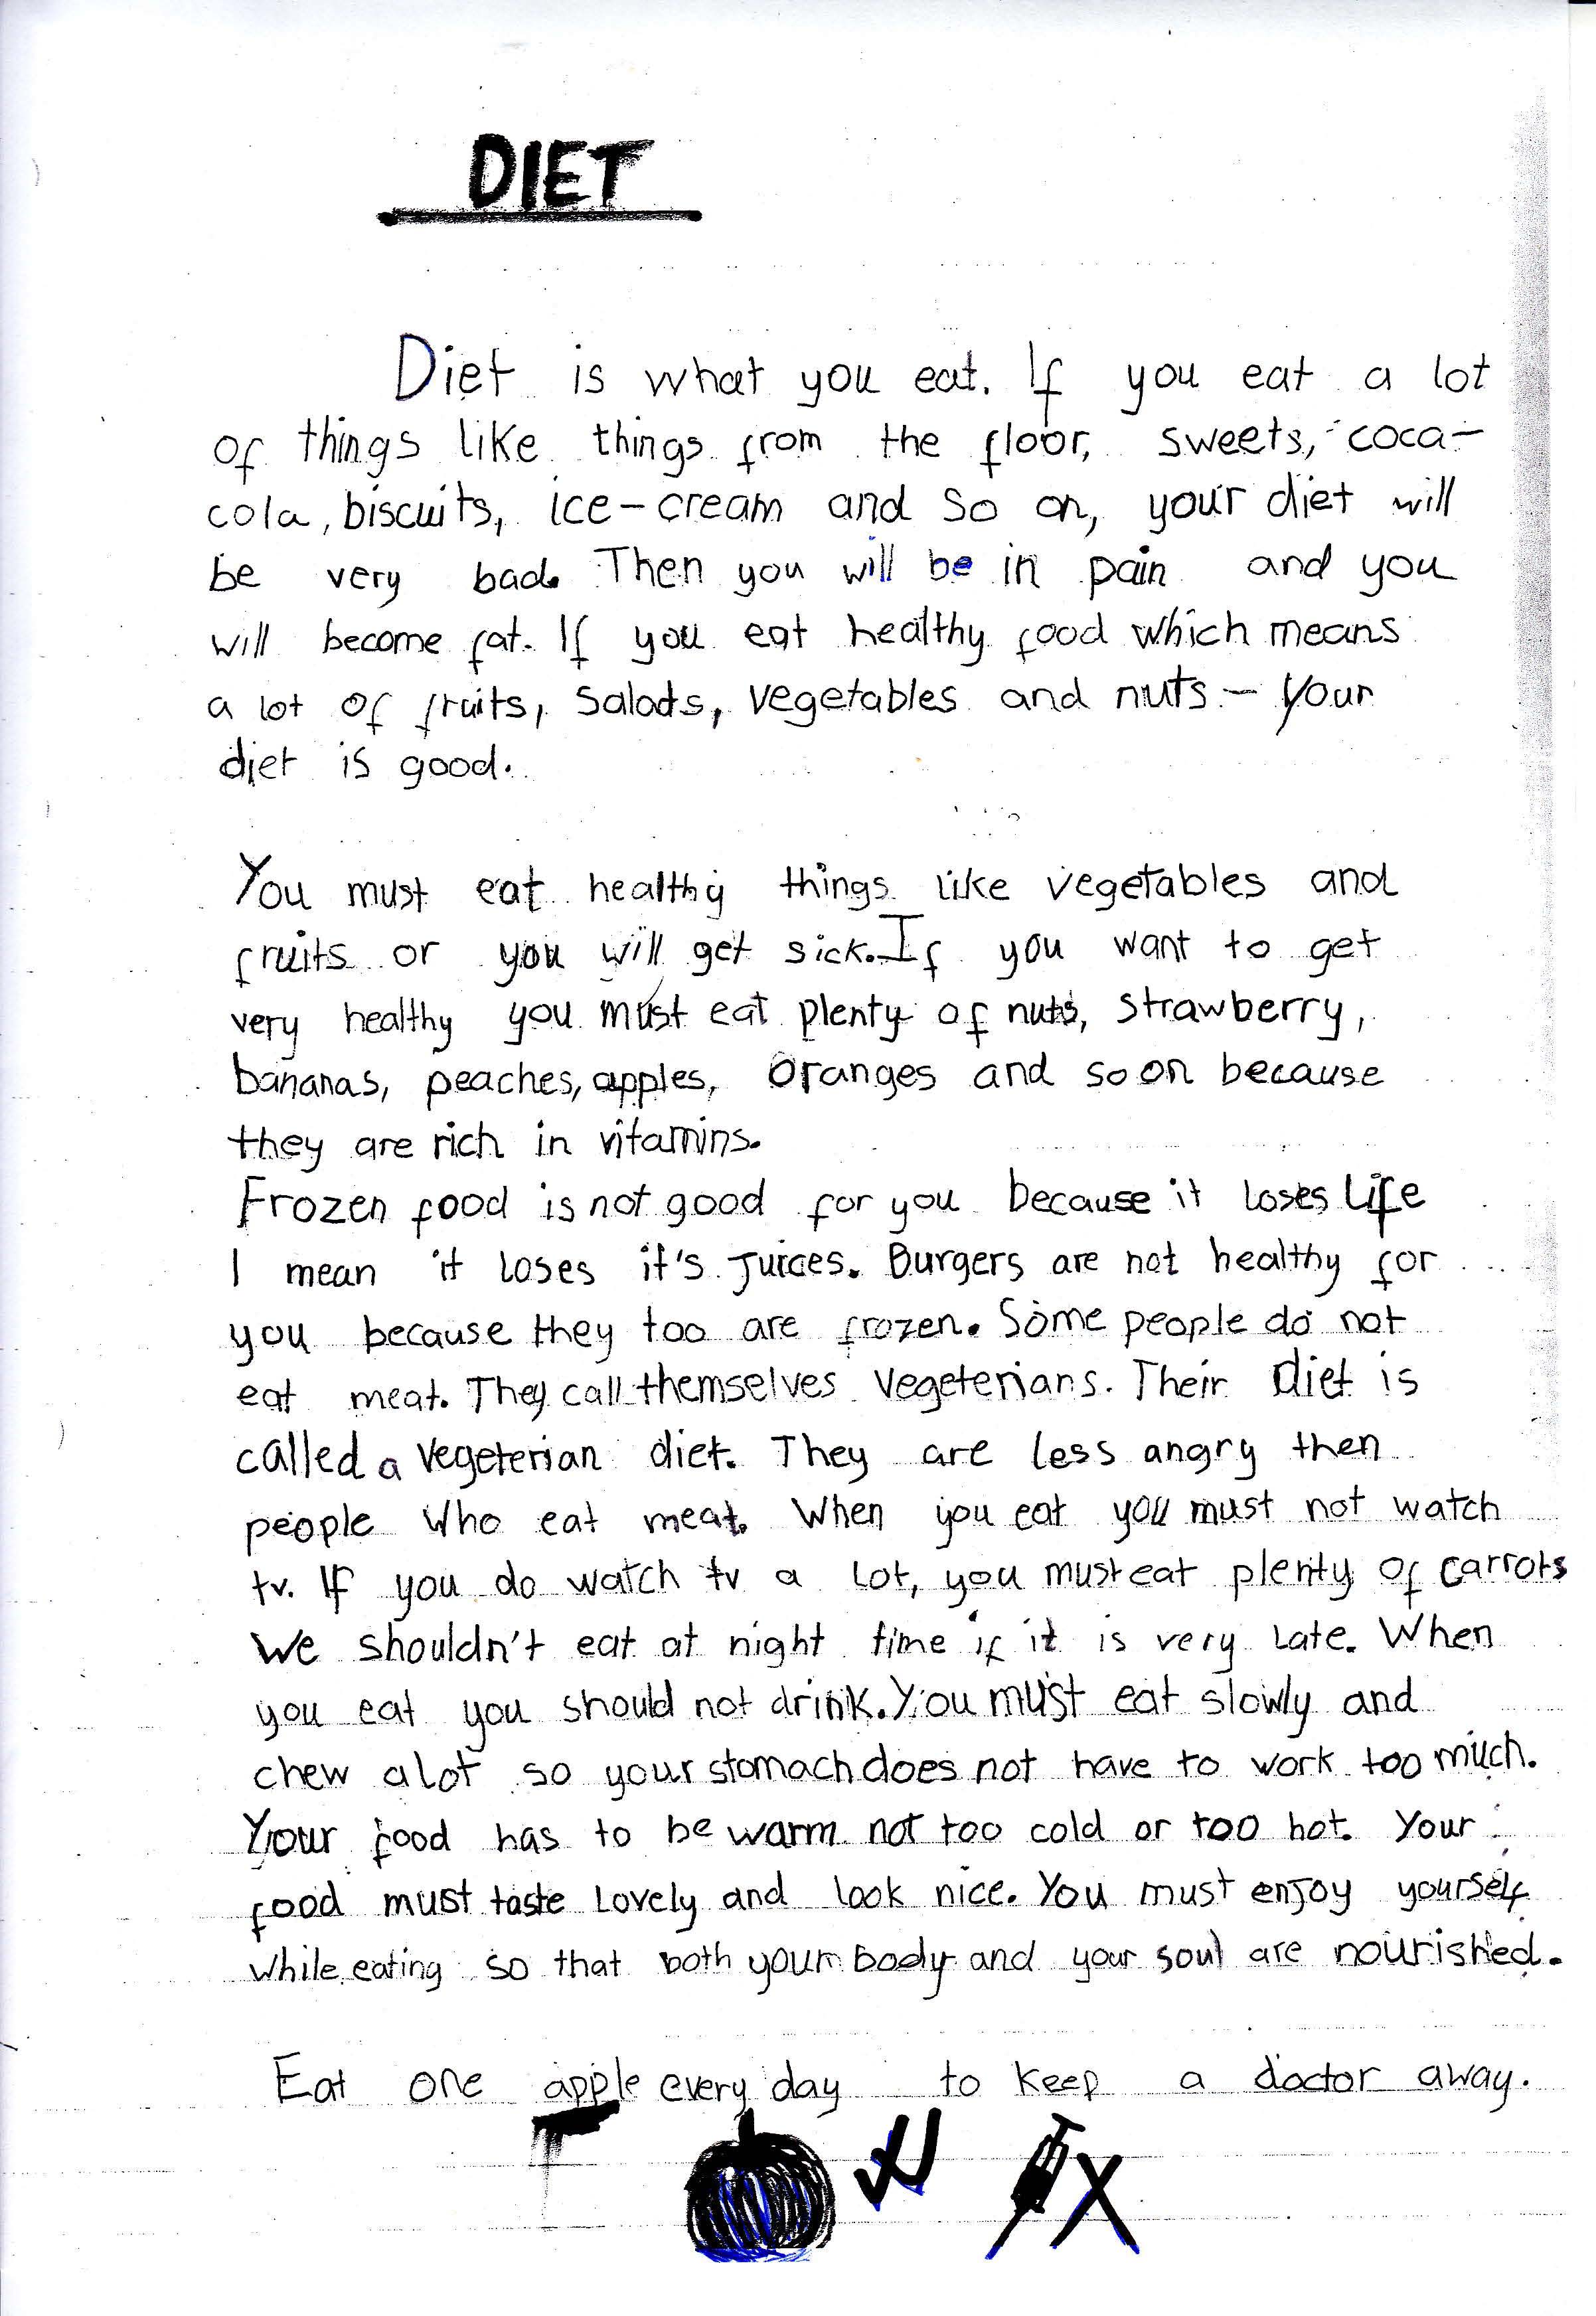 DIET
Diet is what you eat. If you eat a lot
of things like things from the floor, sweets, coca-
cola, biscuits, ice-cream and so on, your diet will
be very bad. Then you will be in pain and you
will become fat. If you eat healthy food which means
a lot of fruits, salads, vegetables and nuts - your
diet is good.
You must eat healthy things like vegetables and
fruits or you will get sick. If you want to get
very healthy you must eat plenty of nuts, strawberry,
bananas, peaches, apples, oranges and so on because
they are rich in vitamins.
Frozen food is not good for you because it loses life
I mean it loses it's juices. Burgers are not healthy for
you because they too are frozen. Some people do not
eat meat. They call themselves vegeterians. Their diet is
called a vegeterian diet. They are less angry then
people who eat meat. When you eat you must not watch
tv. If you do watch tv a lot, you must eat plenty of carrots
We shouldn't eat at night time if it is very late. When
you eat you should not drink. You must eat slowly and
chew a lot so your stomach does not have to work too much.
Your food has to be warm not too cold or too hot. Your
food must taste lovely and look nice. You must enjoy yourself
while eating so that both your body and your soul are nourished.
Eat one apple every day to keep a doctor away.